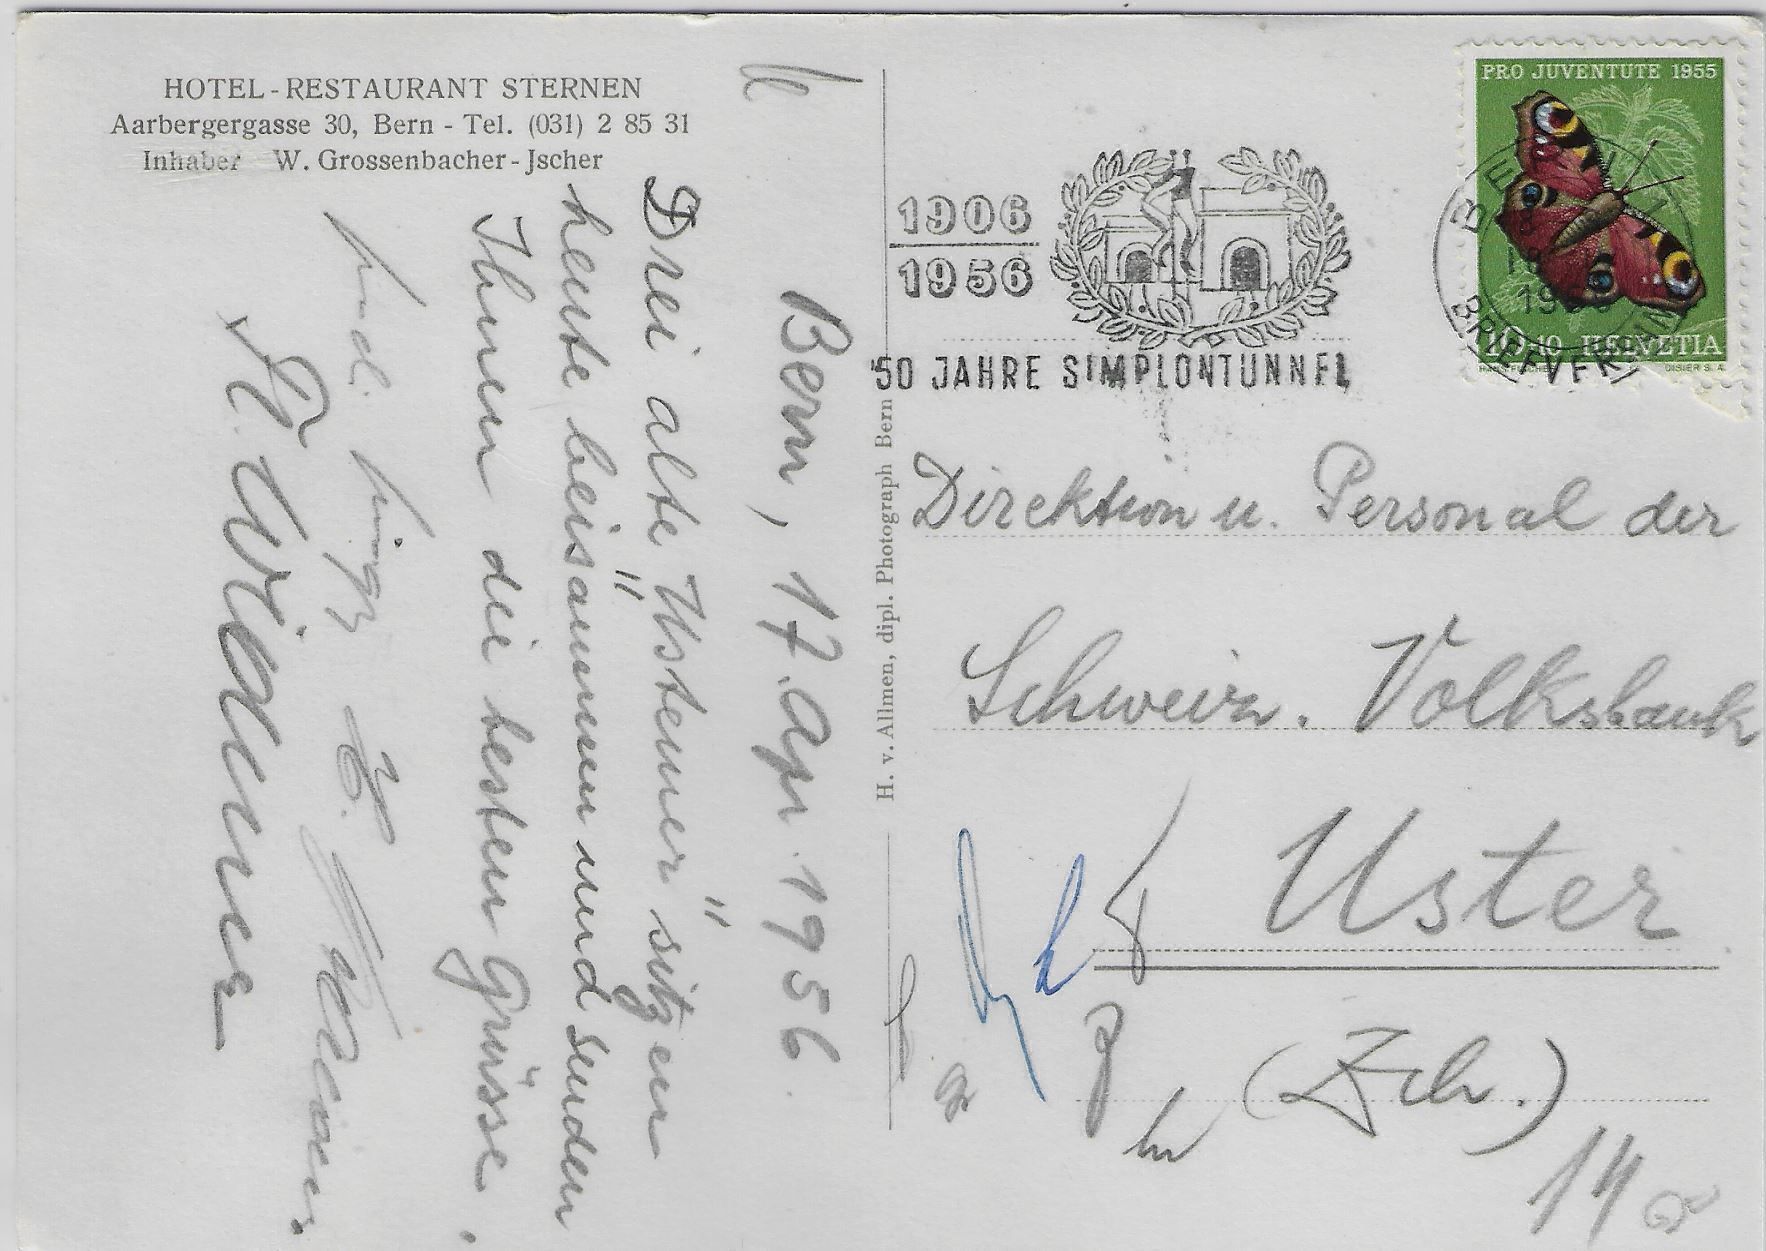 HOTEL-RESTAURANT STERNEN
Aarbergergasse 30, Bern - Tel. (031) 2 85 31
Inhaber W. Grossenbacher-Jscher
Bern, 17. Apr. 1956.
Drei alte Üstemer sitzen
heute beisammen und senden
Ihnen die besten Grüsse.
H. v. Allmen, dipl. Photograph Bern
1906
1956
50 JAHRE SIMPLONTUNNEL
PRO JUVENTUTE 1955
10+10 HELVETIA
HANS FISCHER
BERN 1
BRIEFVERSAND
Direktion u. Personal der
Schweiz. Volksbank
Uster
(Zch.)